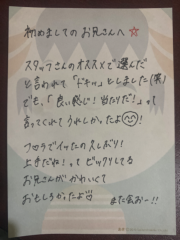 初めましてのお兄さんへ☆
スタッフさんのオススメで選んだ
と言われて「ドキッ」としました(笑)
でも、「良い感じ！当たりだ！」って
言ってくれてうれしかったよ😊!
フロラでイッたの久しぶり！
上手だね！ってビックリしてる
お兄さんがかわいくて
おもしろかったよ
また会おー!!